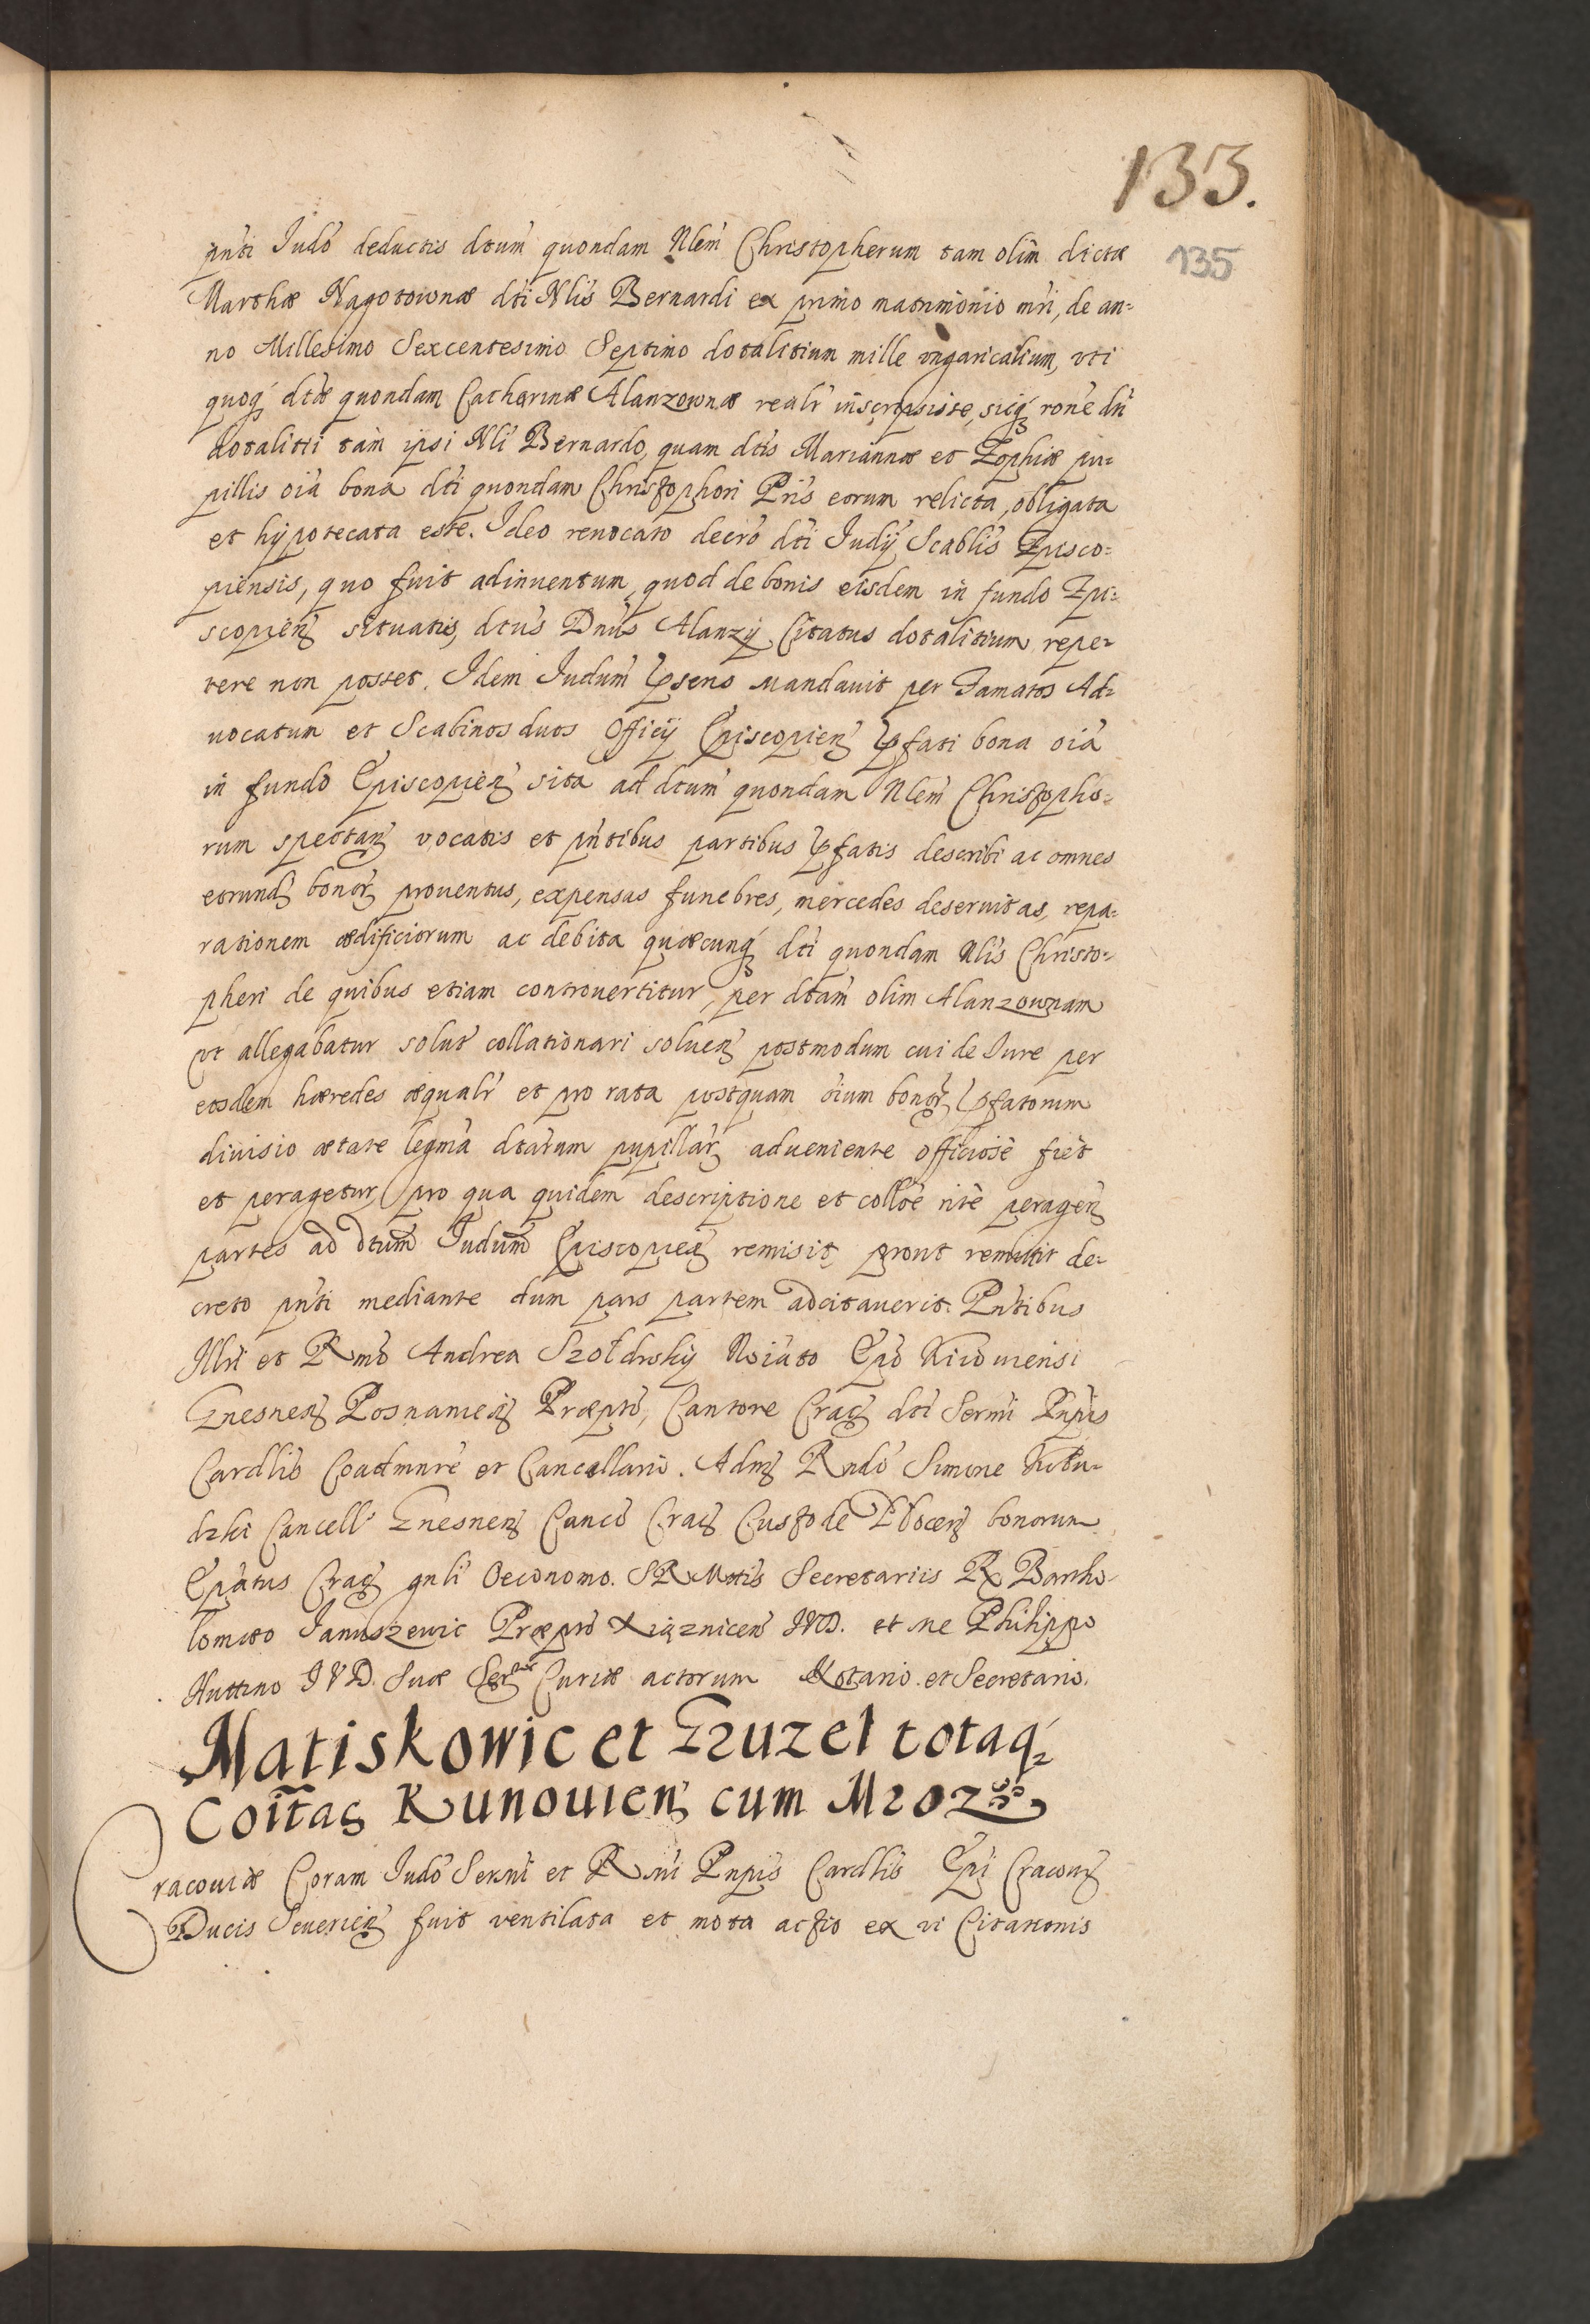 133.
135
pnti Judo deductis dtum quondam Nlem Christopherum tam olim dictæ
Marthæ Nagotownæ dti Nlis Bernardi ex primo matrimonio mri, de an=
no Millesimo Sexcentesimo Septimo dotalitium mille ungaricalium, vti
quoq dtæ quondam Catharinæ Alanzownæ realr inscripsisse, sicq rone dti
dotalitii tam ipsi Nli Bernardo, quam dtis Mariannæ et Zophiæ pu=
pillis oia bona dti quondam Christophori Pris eorum relicta, obligata
et hypotecata esse. Ideo reuocato decro dti Judij Scablis Episco=
piensis, quo fuit adinuentum, quod de bonis eisdem in fundo Epi=
scopien situatis, dtus Dnus Alanzy Citatus dotalitium repe=
tere non posset. Idem Judum pseno mandauit per Famatos Ad=
uocatum et Scabinos duos Officij Episcopien pfati bona oia
in fundo Episcopien sita ad dtum quondam Nlem Christopho=
rum spectan vocatis et pntibus partibus pfatis describi ac omnes
eorund bonor prouentus, expensas funebres, mercedes deseruitas, repa=
rationem ædificiorum ac debita quæcunq dti quondam Nlis Christo=
pheri de quibus etiam controuertitur, per dtam olim Alanzownam
vt allegabatur solut collationari soluen postmodum cui de Jure per
eosdem hæredes æqualr et pro rata postquam oium bonor pfatorum
diuisio ætate legma dtarum pupillar adueniente officiose fiet
et peragetur, pro qua quidem descriptione et colloe rite peragen
partes ad dtum Judum Episcopien remisit prout remittit de=
creto pnti mediante dum pars partem adcitauerit. Pntibus
Illri et Rmo Andrea Szołdrsky Noiato Epo Kiiouiensi
Gnesnen Posnanien Præpto, Cantore Crac dti Sermi Pnpis
Cardlis Coadmnre et Cancellario. Adm Rndo Simone Kołu=
dzki Cancell Gnesnen Canco Crac Custode Plocen bonorum
Epatus Crac gnli Oeconomo. SRMttis Secretariis R Bartho=
lomæo Januszewic Præpto Xiąznicen JVD. et me Philippo
Huttino JVD. Suæ Ser Curiæ actorum Notario et Secretario.
Matiskowic et Gruzel totaq
Coitas Kunouien cum Mroz
Cracouiæ Coram Judo Sermi et Rmi Pnpis Cardlis Epi Cracou
Ducis Seuerien fuit ventilata et mota actio ex vi Citationis